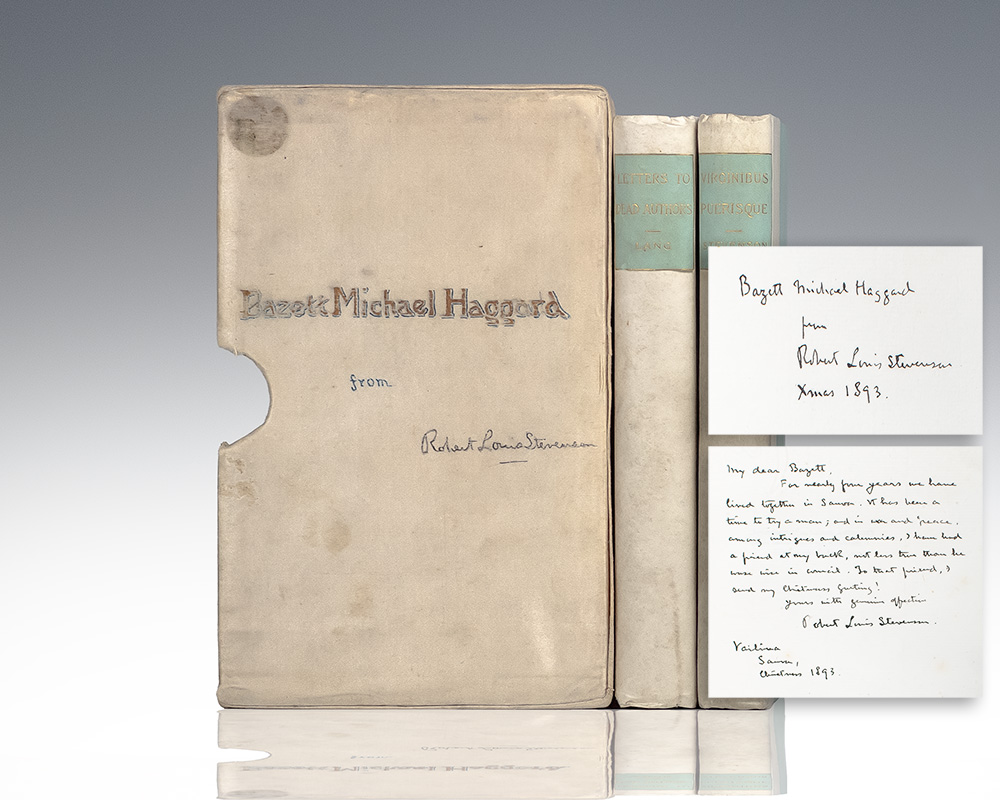 Bazett Michael Haggard
from
Robert Louis Stevenson
LETTERS TO
DEAD AUTHORS
LANG
VIRGINIBUS
PUERISQUE
STEVENSON
Bazett Michael Haggard
from
Robert Louis Stevenson
Xmas 1893.
My dear Bazett,
For nearly four years we have
lived together in Samoa. It has been a
time to try a man; and in war and peace,
among intrigues and calumnies, I have had
a friend at my back, not less true than he
was wise in council. To that friend, I
send my Christmas Greeting!
Yours with genuine affection
Robert Louis Stevenson.
Vailima
Samoa,
Christmas 1893.